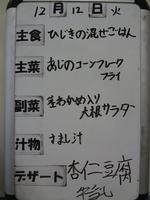 12月12日火
主食 ひじきの混ぜごはん
主菜 あじのコーンフレーク
フライ
副菜 茎わかめ入り
大根サラダー
汁物 すまし汁
デザート 杏仁豆腐
牛乳